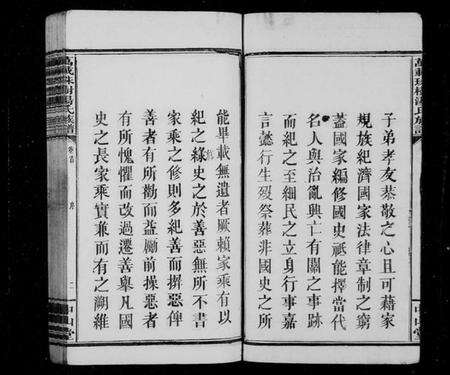 子弟孝友恭敬之心且可藉家
規族紀濟國家法律章制之窮
蓋國家編修國史祇能擇當代
名人與治亂興亡有關之事跡
而紀之至細民之立身行事嘉
言懿行生歿祭葬非國史之所
能畢載無遺者厥賴家乘有以
紀之緣史之於善惡無所不書
家乘之修則多紀善而摒惡俾
善者有所勸而益勵前操惡者
有所愧懼而改過遷善舉凡國
史之長家乘實兼而有之溯維
卷首
序
二